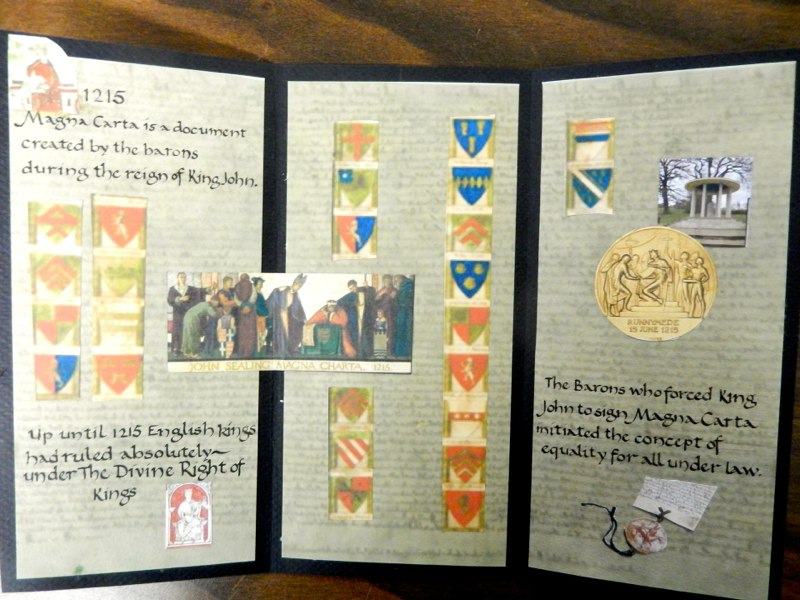 1215
Magna Carta is a document
created by the barons
during the reign of King John.
Up until 1215 English kings
had ruled absolutely~
under The Divine Right of
Kings
JOHN SEALING MAGNA CHARTA, 1215.
RUNNYMEDE
15 JUNE 1215
The Barons who forced King
John to sign Magna Carta
initiated the concept of
equality for all under law.